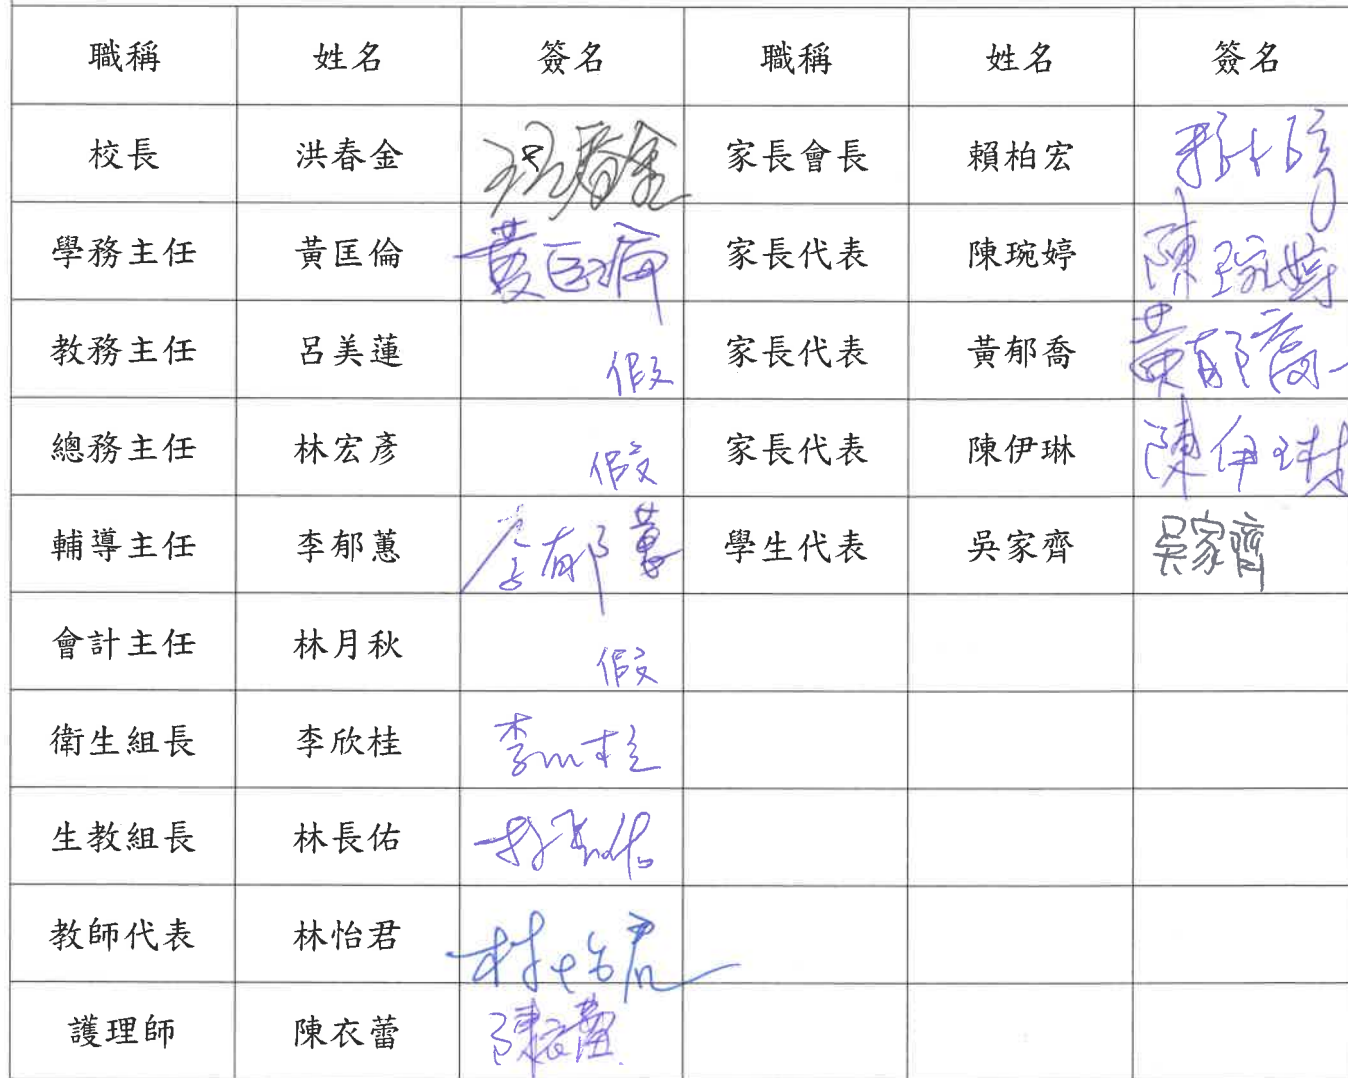 職稱 姓名 簽名 職稱 姓名 簽名
校長 洪春金 洪春金 家長會長 賴柏宏
學務主任 黃匡倫 黃匡倫 家長代表 陳琬婷 陳琬婷
教務主任 呂美蓮 假 家長代表 黃郁喬 黃郁喬
總務主任 林宏彥 假 家長代表 陳伊琳 陳伊琳
輔導主任 李郁蕙 李郁蕙 學生代表 吳家齊 吳家齊
會計主任 林月秋 假
衛生組長 李欣桂 李欣桂
生教組長 林長佑 林長佑
教師代表 林怡君 林怡君
護理師 陳衣蕾 陳衣蕾